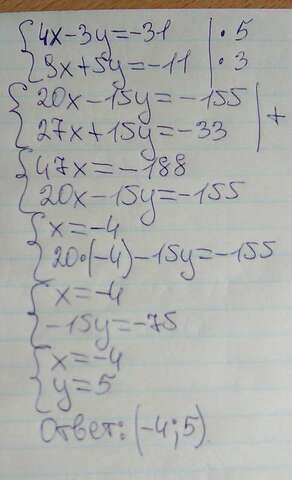 4x-3y=-31 | ·5
9x+5y=-11 | ·3
20x-15y=-155
27x+15y=-33 | +
47x=-188
20x-15y=-155
x=-4
20·(-4)-15y=-155
x=-4
-15y=-75
x=-4
y=5
Ответ: (-4;5)